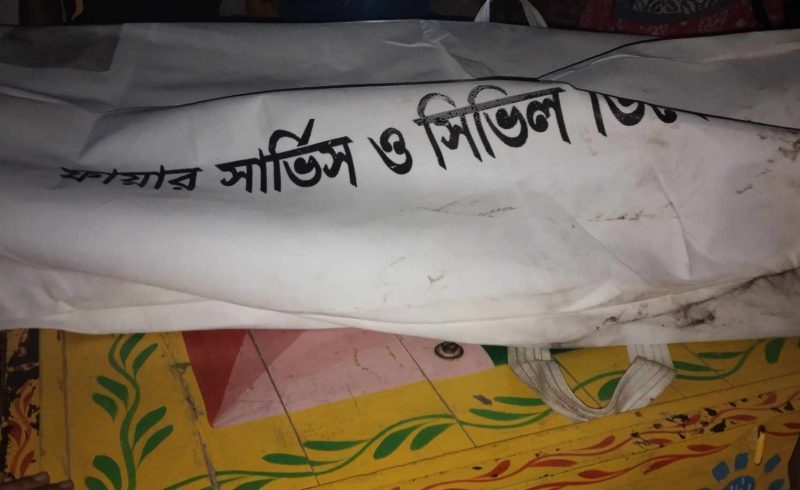 ফায়ার সার্ভিস ও সিভিল